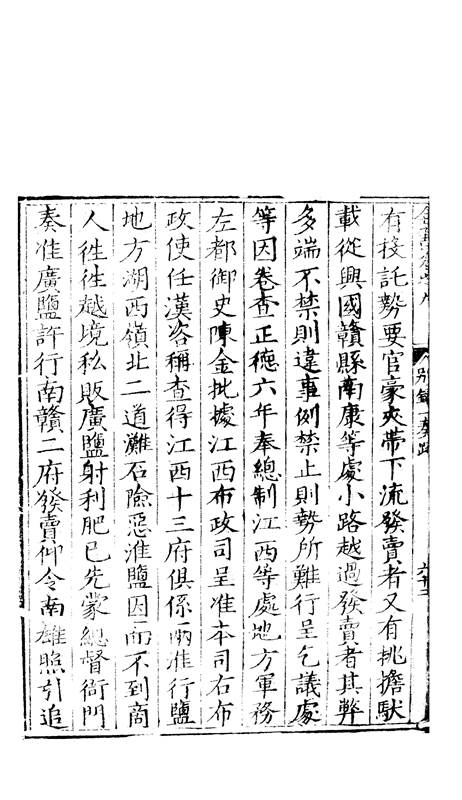 有投託勢要官豪夾帶下流發賣者又有挑擔馱
載從興國贛縣南康等處小路越過發賣者其弊
多端不禁則違事例禁止則勢所難行呈乞議處
等因卷查正德六年奉總制江西等處地方軍務
左都御史陳金批據江西布政司呈准本司右布
政使任漢咨稱查得江西十三府俱係兩淮行鹽
地方湖西嶺北二道灘石險惡淮鹽因而不到商
人徃徃越境私販廣鹽射利肥已先蒙總督衙門
奏准廣鹽許行南贛二府發賣仰令南雄照引追
別錄 奏疏